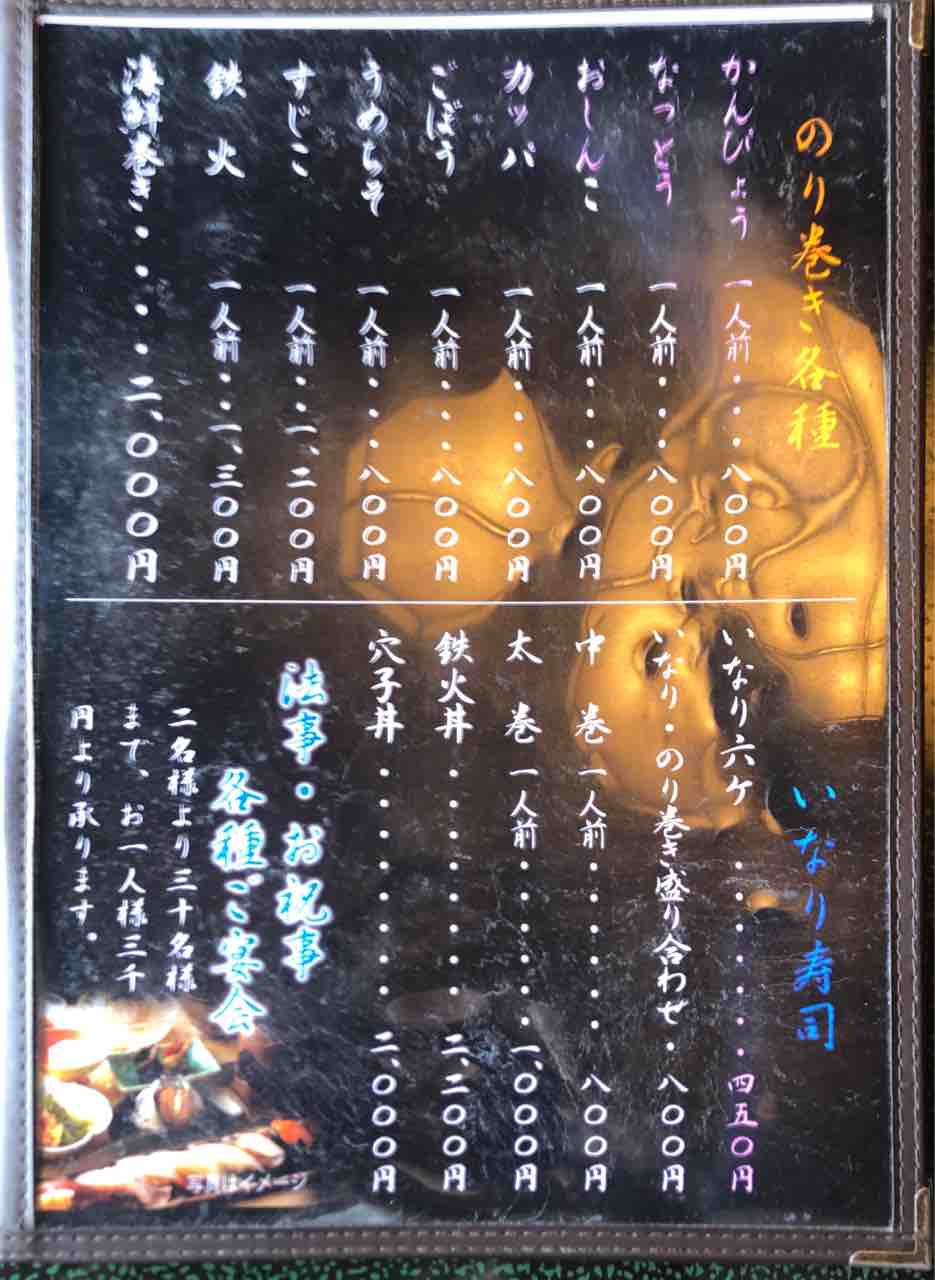 のり巻き各種
かんぴょう 一人前・・・八〇〇円
なっとう 一人前・・・八〇〇円
おしんこ 一人前・・・八〇〇円
カッパ 一人前・・・八〇〇円
ごぼう 一人前・・・八〇〇円
うめちそ 一人前・・・八〇〇円
すじこ 一人前・・一、二〇〇円
鉄火 一人前・・一、三〇〇円
海鮮巻き・・・・二、〇〇〇円
いなり寿司
いなり六ケ・・・・・・・四五〇円
いなり・のり巻き盛り合わせ・八〇〇円
中巻 一人前・・・・・・・八〇〇円
太巻 一人前・・・・・・一、〇〇〇円
鉄火丼・・・・・・・・二、二〇〇円
穴子丼・・・・・・・・二、〇〇〇円
法事・お祝事
各種ご宴会
二名様より三十名様
まで、お一人様三千
円より承ります。
写真はイメージ